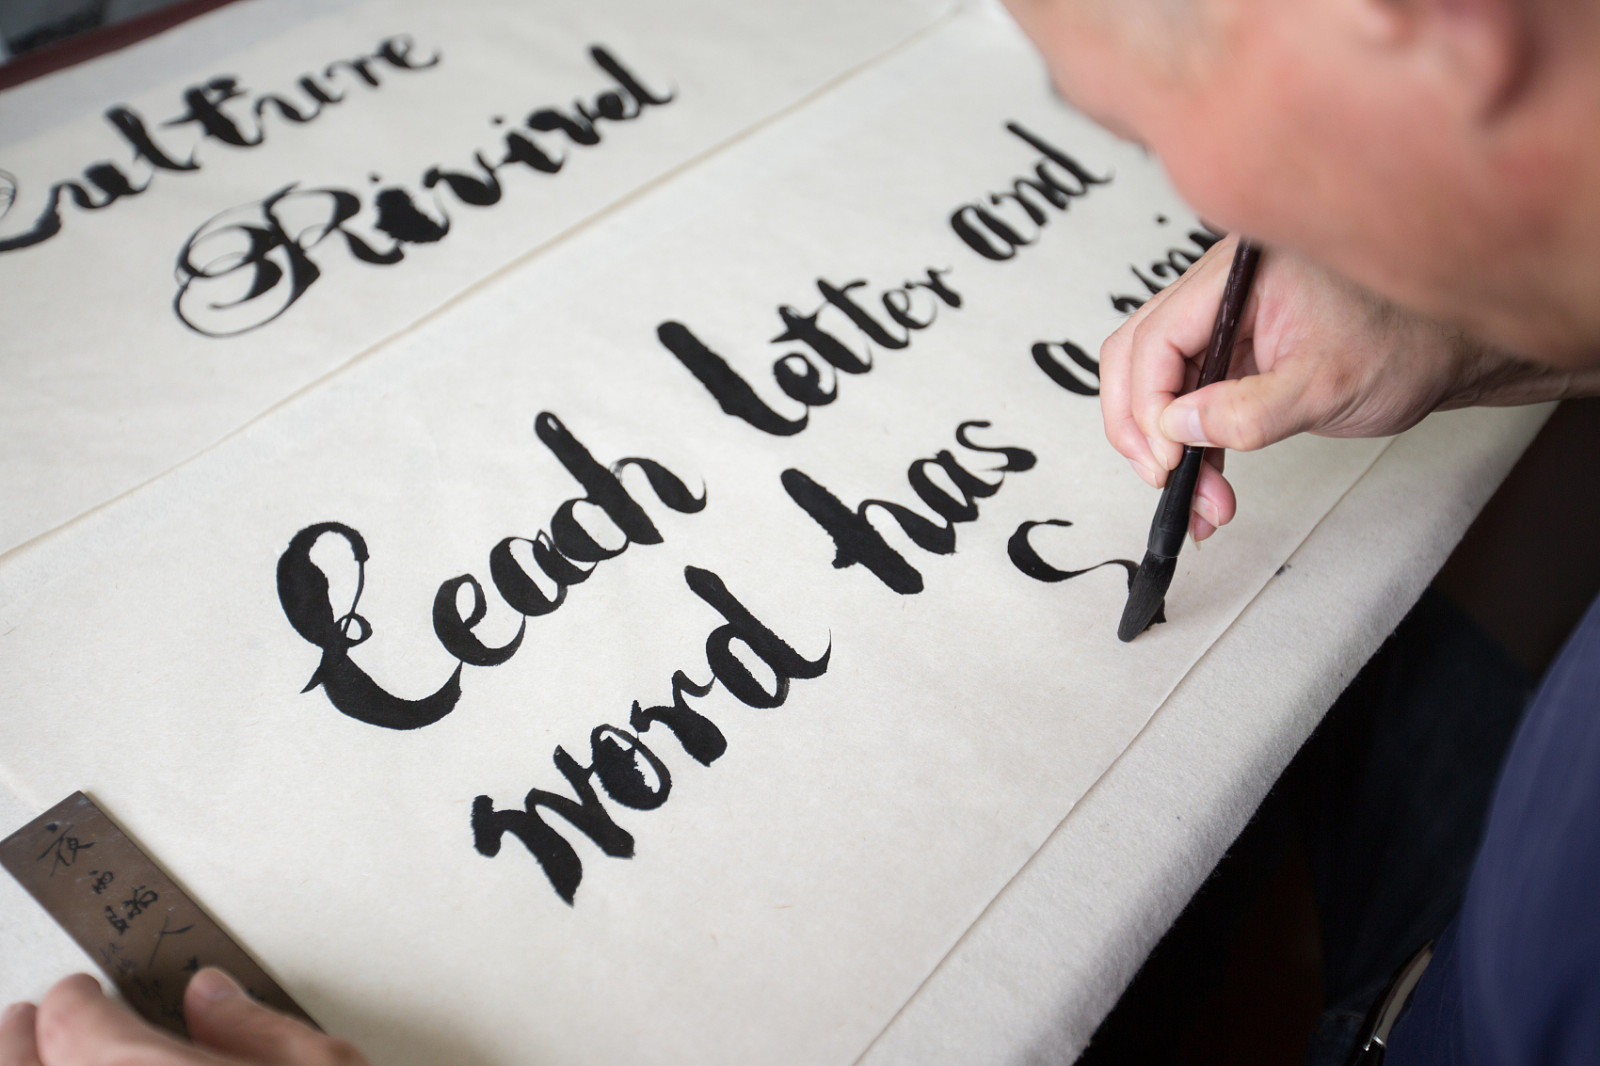 Culture
Rivival
Eeach letter and
word has a
S
夜雨